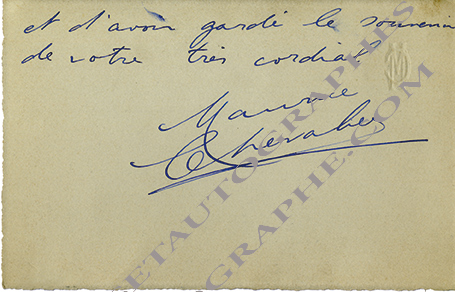 et d'avoir gardé le souvenir
de votre très cordial
Maurice
Chevalier
ETAUTOGRAPHES
OGRAPHE.COM